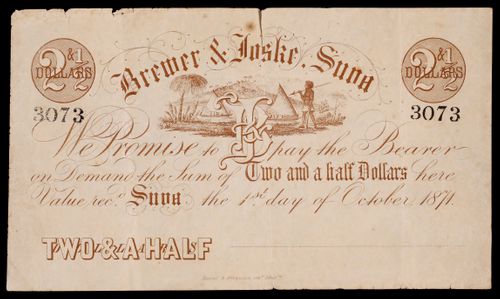 2 & 1/2 DOLLARS
Brewer & Joske, Suva
2 & 1/2 DOLLARS
3073
3073
We Promise to pay the Bearer
on Demand the Sum of Two and a half Dollars here
Value rec.d Suva the 1st day of October 1871.
TWO & A HALF